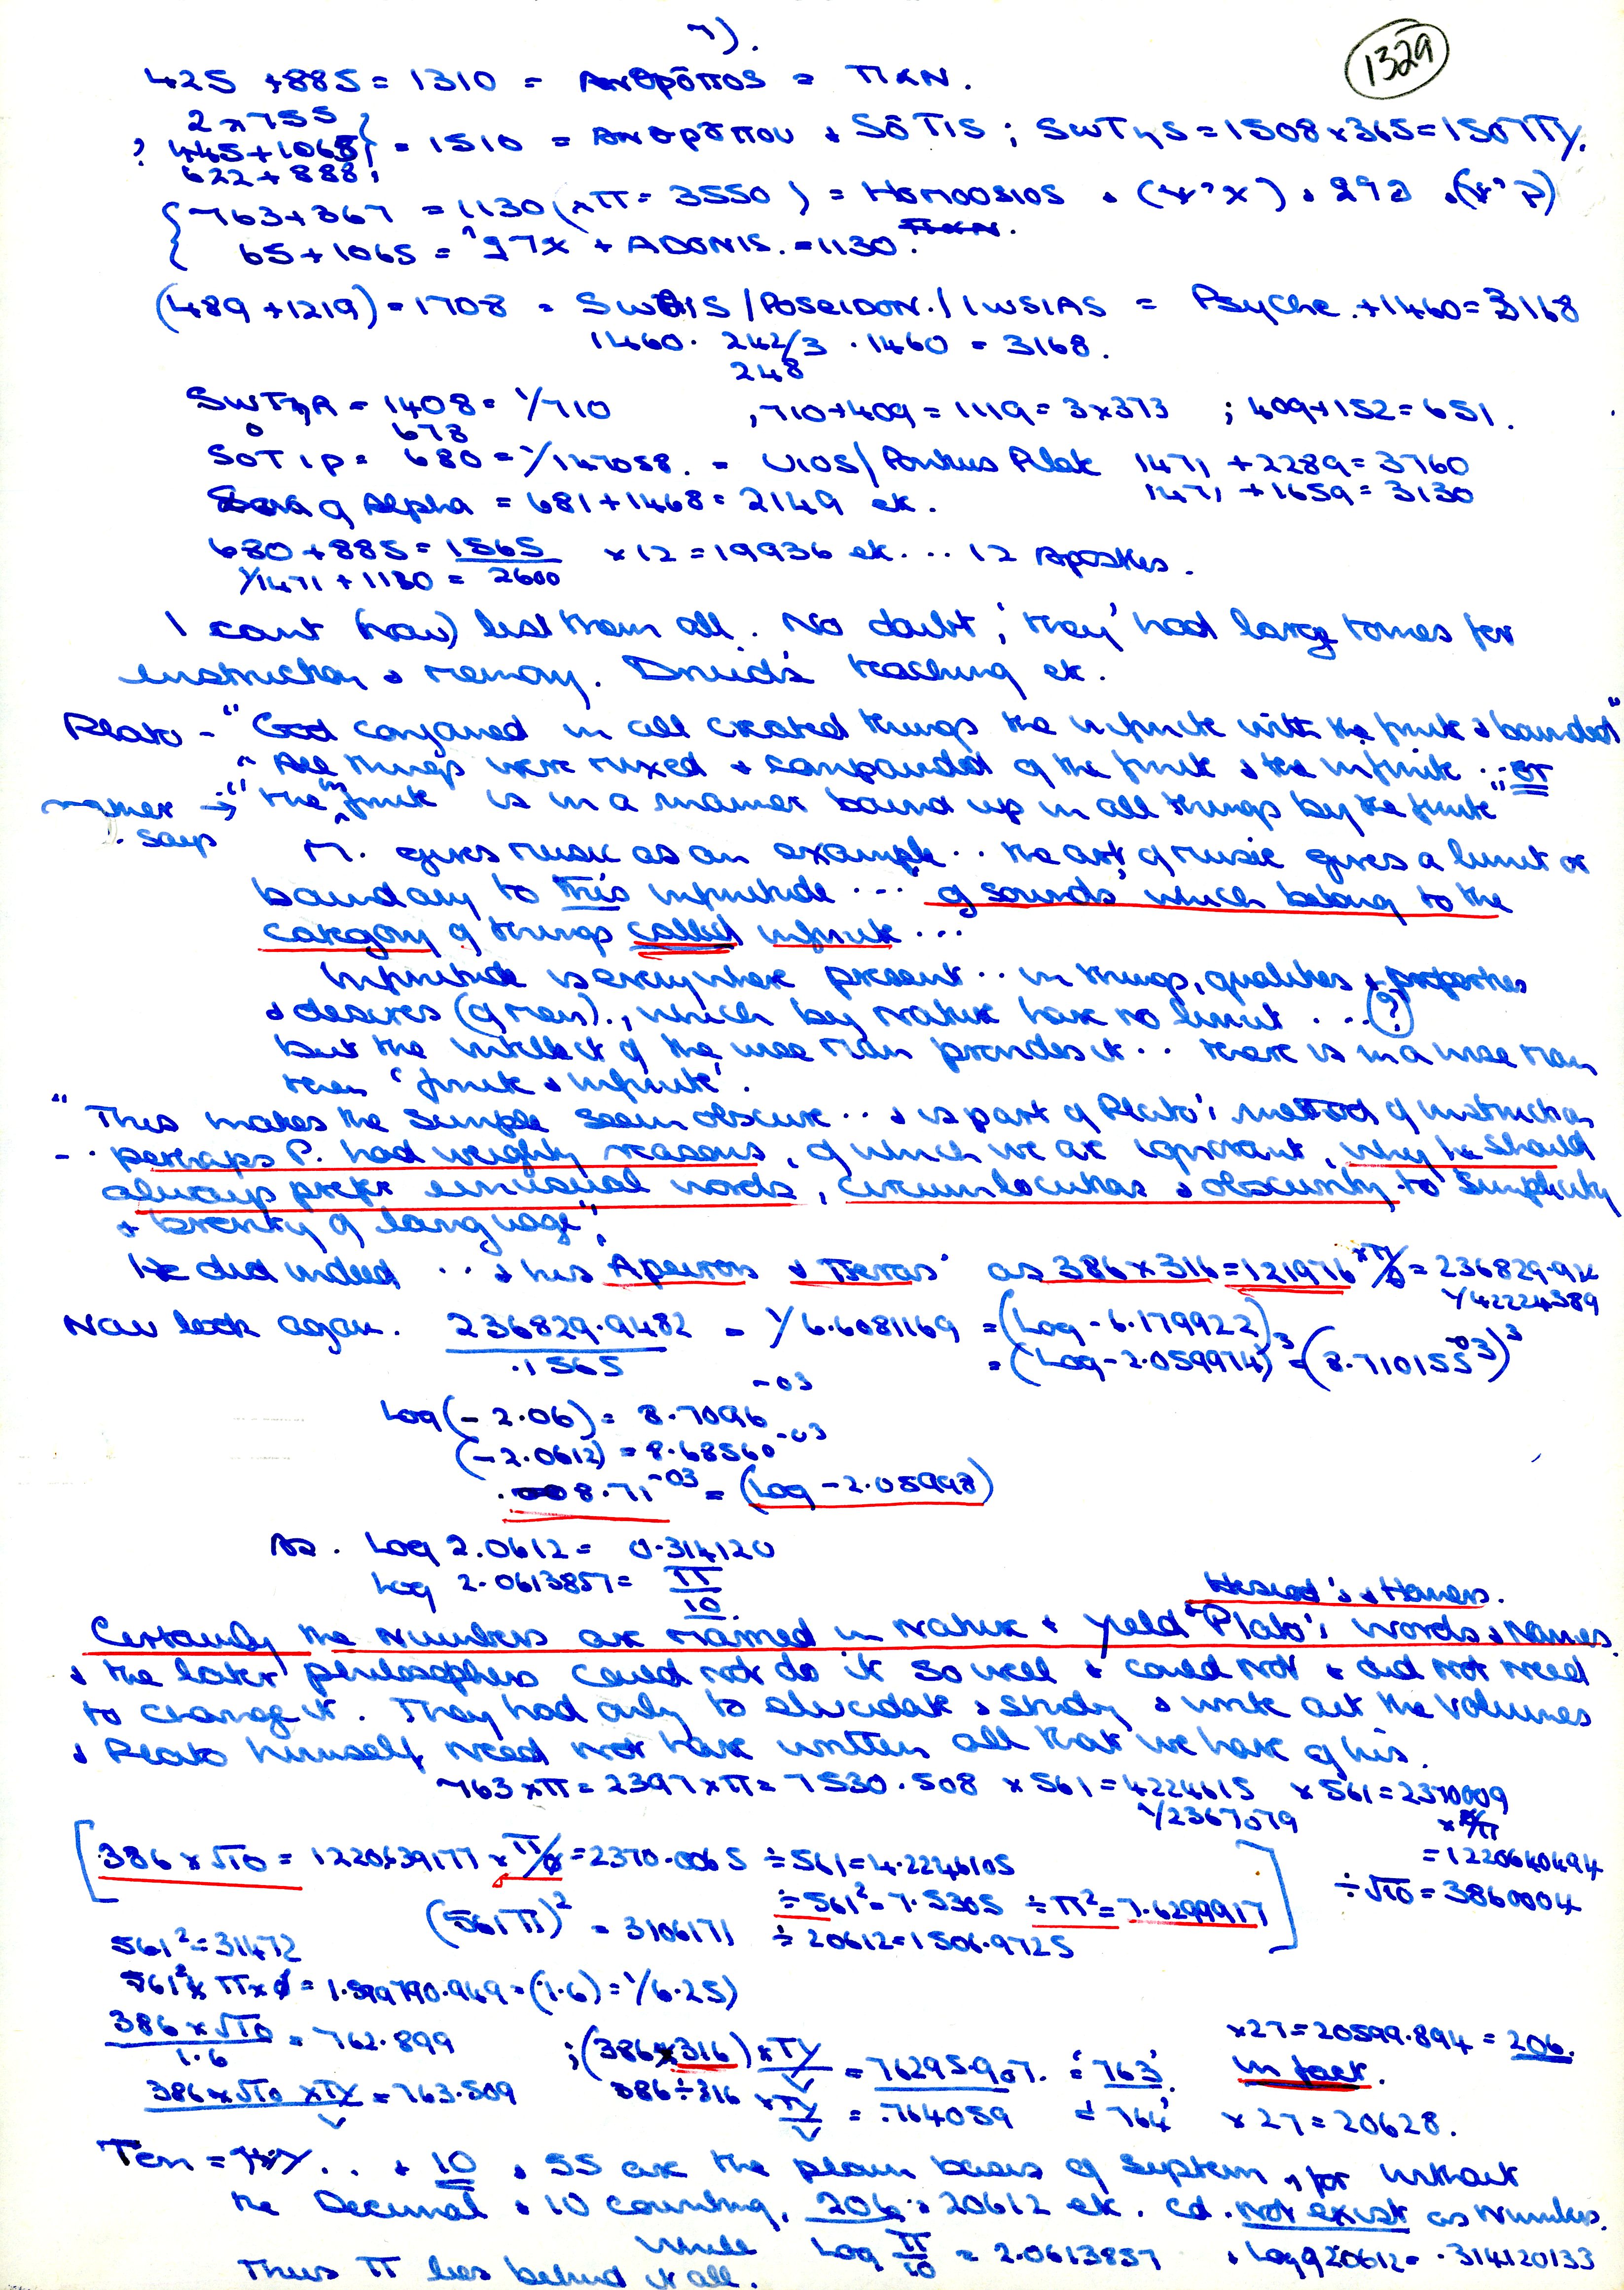 7).
1329
425 + 885 = 1310 = Ανθρôπος = ΠΑΝ.
2 x 755
? 445 + 1065 } = 1510 = Ανθρôπου & SôTIS ; SωTηS = 1508 x 365 =
622 + 888,
{ 763 + 367 = 1130 (x π = 3550) = Homoosios
65 + 1065 = + ADONIS. = 1130.
(489 + 1219) = 1708 = / POSEIDON. / IWSIAS = Psyche. + 1460 = 3168
1460. 242/3 . 1460 = 3168.
248
SWTηR = 1408 = 1/710 , 710 + 409 = 1119 = 3 x 373 ; 409 + 152 = 651.
678
SOTIP = 680 = 1/147058. = UIOS / Pontius Pilate 1471 + 2289 = 3760
1471 + 1659 = 3130
Alpha = 681 + 1468 = 2149 etc.
680 + 885 = 1565 x 12 = 19936 etc... 12 Apostles.
1/1471 + 1130 = 2600
I cant (now) list them all. No doubt, 'they' had large tomes for
instruction & memory. Druids teaching etc.
Plato - "God conjoined in all created things the infinite with the finite & bounded"
"All things were mixed & compounded of the finite & the infinite ..." or
another → "the infinite" is in a manner bound up in all things by the finite"
says
M. gives music as an example .. the art of music gives a limit or
boundary to this infinitude ... of sounds, which belong to the
category of things called infinite ...
Infinitude is everywhere present .. in things, qualities & properties
& desires (of men)., which by nature have no limit ... (?)
but the intellect of the wise man provides it .. there is in a wise man
then 'finite & infinite'.
"This makes the simple seem obscure .. & is part of Plato's method of instruction
- . perhaps P. had weighty reasons, of which we are ignorant, why he should
always prefer unusual words, circumlocution & obscurity to simplicity
& brevity of language".
He did indeed .. & his 'Apeiron & Peras' as 386 x 316 = 121976 = 236829.94
1/42224389
Now look again. 236829.9482 = 1/6.6081169 = (Log - 6.179922)
.1565 = (Log - 2.059974)³ = (8.710155 -03)³
Log (- 2.06) = 8.7096 -03
(- 2.0612) = 8.68560 -03
8.71 -03 = (Log - 2.05998)
As. Log 2.0612 = 0.314120
Log 2.0613857 = π/10
Hesiod's & Homers.
Certainly the numbers are named in nature & yield "Plato's words & Names.
& the later philosophers could not do it so well & could not & did not need
to change it. They had only to elucidate & study & write out the volumes
& Plato himself need not have written all that we have of his.
763 x π = 2397 x π = 7530.508 x 561 = 4224615 x 561 = 2370009
1/2367079
= 1220640494
÷ √10 = 3860004
[ 386 x √10 = 1220.639177 x π/φ = 2370.0065 ÷ 561 = 4.2246105
÷ 561² = 7.5305 ÷ π² = 7.6299917 ]
(561π)² = 3106171 ÷ 20612 = 1506.9725
561² = 31472
561² x π x φ = 1.599790.949 = (1.6) = 1/6.25)
386 x √10 / 1.6 = 762.899 ; (386 x 316) = 76295.907. = '763' x 27 = 20599.894 = 206. in fact.
386 x √10 = 763.509 386 ÷ 316 = .764059 = '764' x 27 = 20628.
Ten = .. & 10 & 55 are the plain bases of system, for without
the Decimal & 10 counting, 206 & 20612 etc. cd. not exist as numbers.
while Log π/10 = 2.0613857 & Log 920612 = .314120133
Thus π lies behind it all.